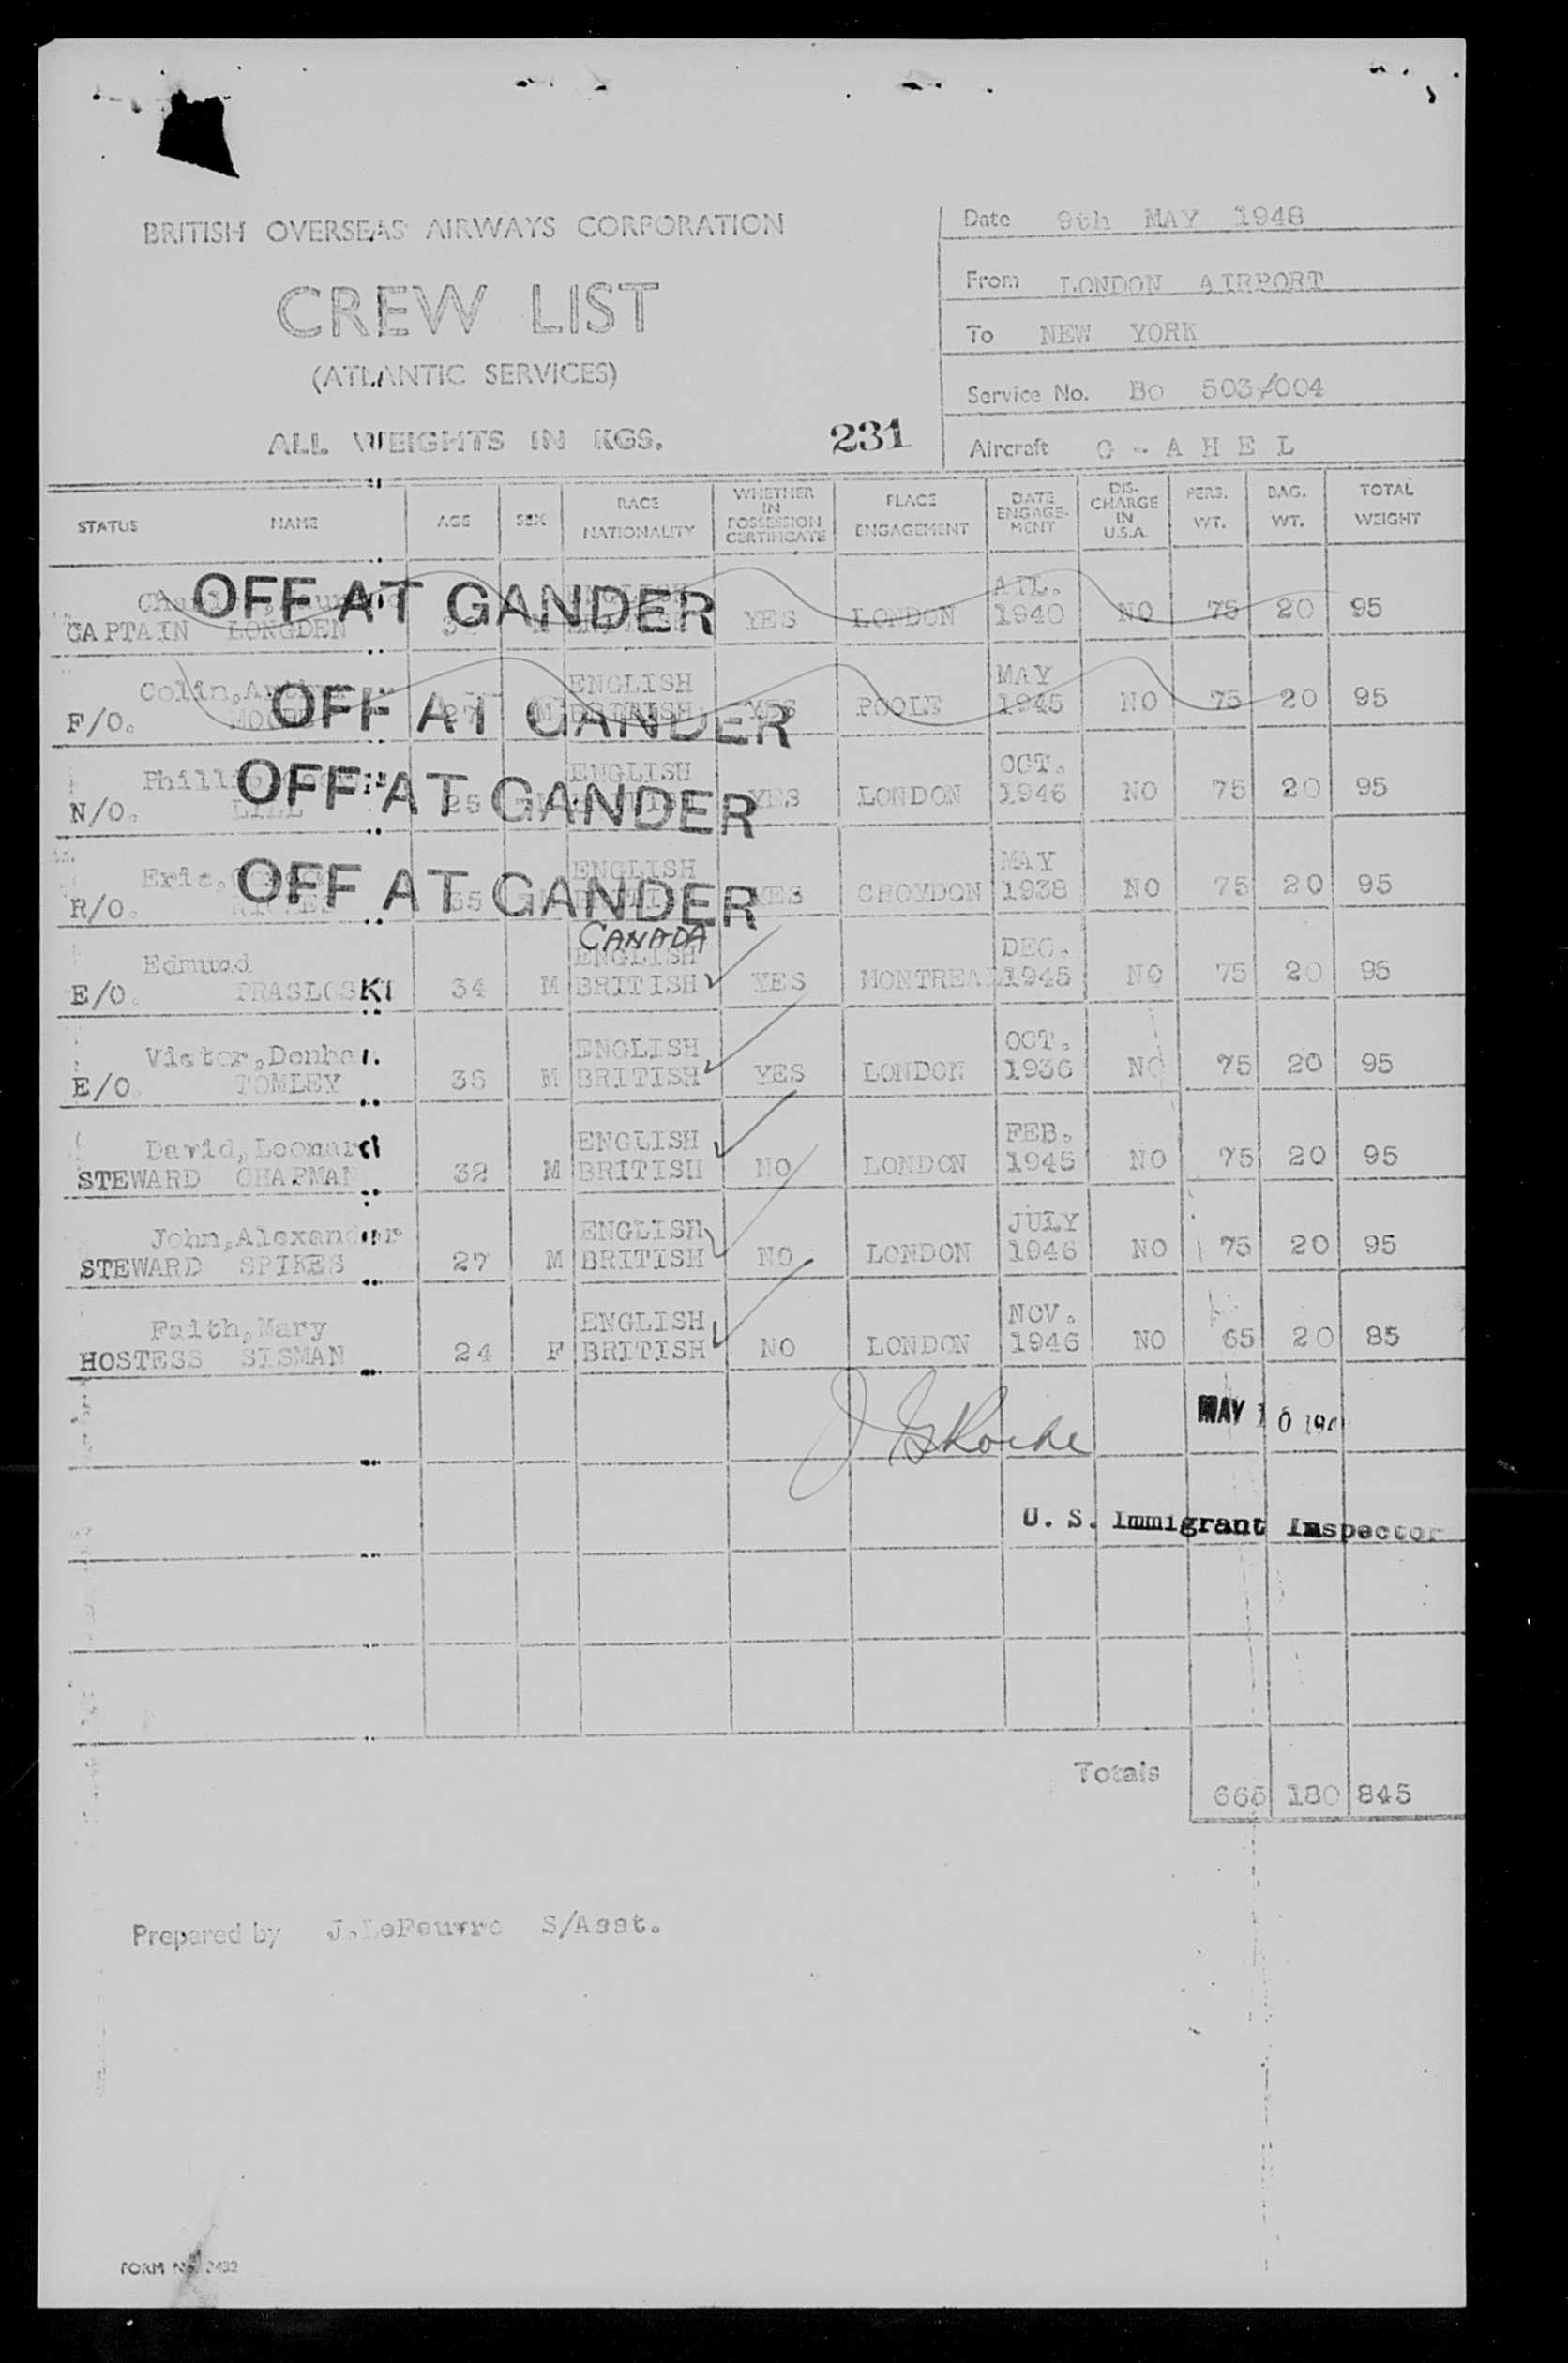 BRITISH OVERSEAS AIRWAYS CORPORATION
CREW LIST
(ATLANTIC SERVICES)
ALL WEIGHTS IN KGS.
231
Date 9th MAY 1948
From LONDON AIRPORT
To NEW YORK
Service No. Bo 503/004
Aircraft G - A H E L
STATUS NAME AGE SEX RACE NATIONALITY WHETHER IN POSSESSION CERTIFICATE PLACE ENGAGEMENT DATE ENGAGE-MENT DIS-CHARGE IN U.S.A. PERS. WT. BAG. WT. TOTAL WEIGHT
OFF AT GANDER
CAPTAIN LONGDEN YES LONDON 1940 NO 75 20 95
Colin, ENGLISH MAY
OFF AT GANDER
F/O. 27 M BRITISH YES POOLE 1945 NO 75 20 95
ENGLISH OCT.
OFF AT GANDER
N/O. LILL 25 YES LONDON 1946 NO 75 20 95
Eric, ENGLISH MAY
OFF AT GANDER
R/O. 35 YES CROYDON 1938 NO 75 20 95
CANADA
Edmund ENGLISH DEC.
E/O. PRASLOSKI 34 M BRITISH YES MONTREAL 1945 NO 75 20 95
Victor, Denham ENGLISH OCT.
E/O. TOMLEY 36 M BRITISH YES LONDON 1936 NO 75 20 95
David, Leonard ENGLISH FEB.
STEWARD CHAPMAN 32 M BRITISH NO LONDON 1945 NO 75 20 95
John, Alexander ENGLISH JULY
STEWARD SPIKES 27 M BRITISH NO LONDON 1946 NO 75 20 95
Faith, Mary ENGLISH NOV.
HOSTESS SISMAN 24 F BRITISH NO LONDON 1946 NO 65 20 85
MAY 10 194
U. S. Immigrant Inspector
Totals 665 180 845
Prepared by J. LeFeuvre S/Asst.
FORM No. 2432